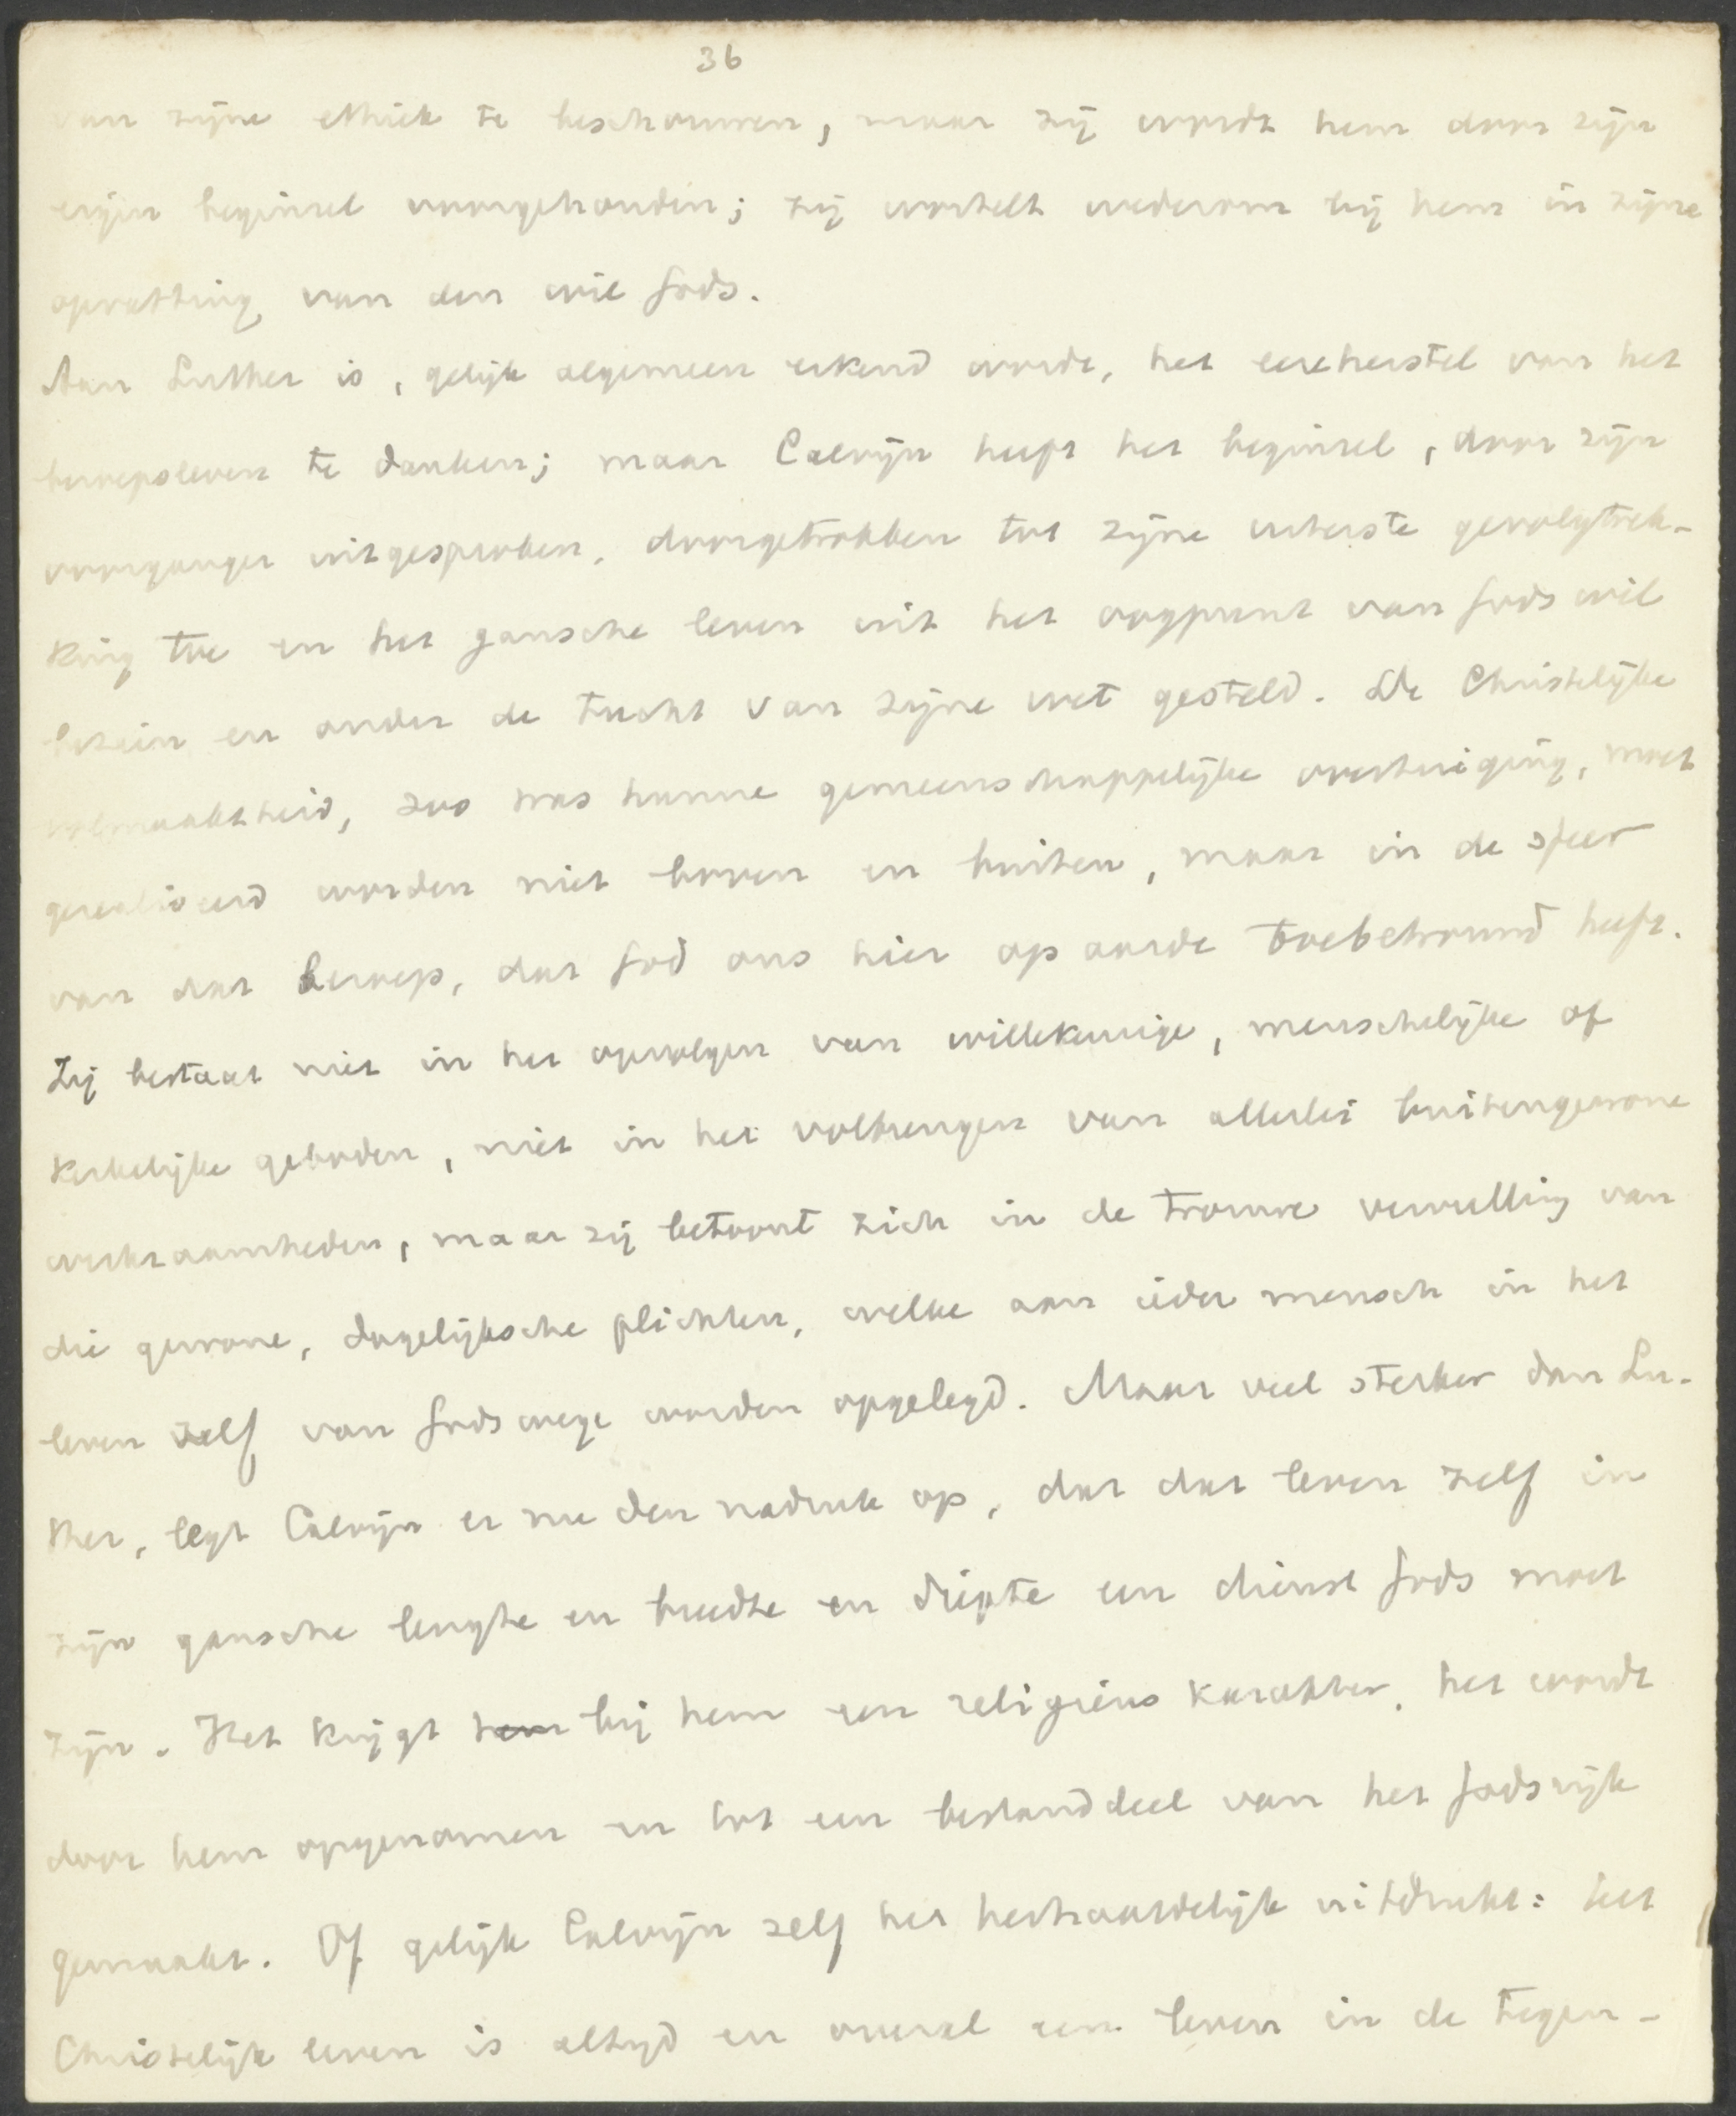 36
van zijne ethiek te beschouwen, maar zij wordt hem door zijn
eigen beginsel voorgehouden; zij wortelt wederom bij hem in zijne
opvatting van den wil Gods.
Aan Luther is, gelijk algemeen erkend wordt, het eereherstel van het
beroepsleven te danken; maar Calvijn heeft het beginsel, door zijn
voorganger uitgesproken, doorgetrokken tot zijne uiterste gevolgtrek-
king toe en het gansche leven uit het oogpunt van Gods wil
bezien en onder de tucht van zijne wet gesteld. De Christelijke
volmaaktheid, zoo was hunne gemeenschappelijke overtuiging, moet
gerealiseerd worden niet boven en buiten, maar in de sfeer
van dat beroep, dat God ons hier op aarde toebetrouwd heeft.
Zij bestaat niet in het opvolgen van willekeurige, menschelijke of
kerkelijke geboden, niet in het volbrengen van allerlei buitengewone
werkzaamheden, maar zij betoont zich in de trouwe vervulling van
die gewone, dagelijksche plichten, welke aan ieder mensch in het
leven zelf van Gods wege worden opgelegd. Maar veel sterker dan Lu-
ther, legt Calvijn er nu den nadruk op, dat dat leven zelf in
zijn gansche lengte en breedte en diepte een dienst Gods moet
zijn. Het krijgt hem bij hem een religieus karakter, het wordt
door hem opgenomen in tot een bestanddeel van het Godsrijk
gemaakt. Of gelijk Calvijn zelf het herhaaldelijk uitdrukt: het
Christelijk leven is altijd en overal een leven in de tegen-